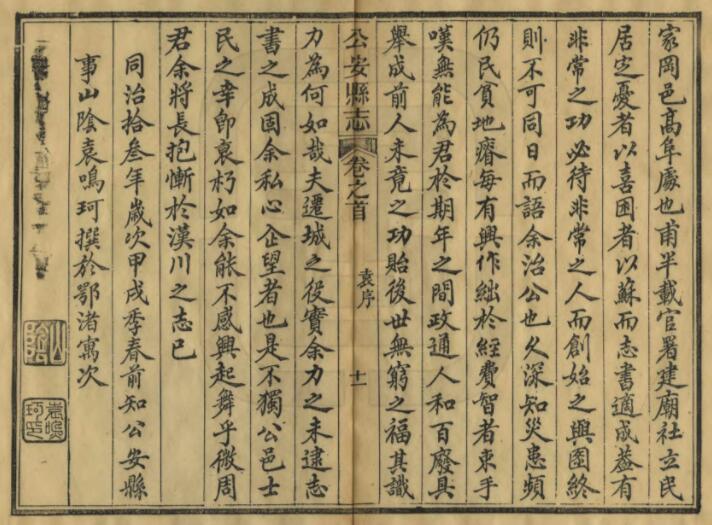 家岡邑高阜處也甫半載官署建廟社立民
居定憂者以喜困者以蘇而志書適成蓋有
非常之功必待非常之人而創始之與圖終
則不可同日而語余治公也久深知災患頻
仍民貧地瘠每有興作絀於經費智者束手
嘆無能為君於期年之間政通人和百廢具
舉成前人未竟之功貽後世無窮之福其識
公安縣志 卷之首 袁序 十一
力為何如哉夫遷城之役實余力之未逮志
書之成固余私心企望者也是不獨公邑士
民之幸卽衰朽如余能不感興起舞乎微周
君余將長抱慚於漢川之志已
同治拾叁年歲次甲戌季春前知公安縣
事山陰袁鳴珂撰於鄂渚寓次
山陰
袁鳴珂印